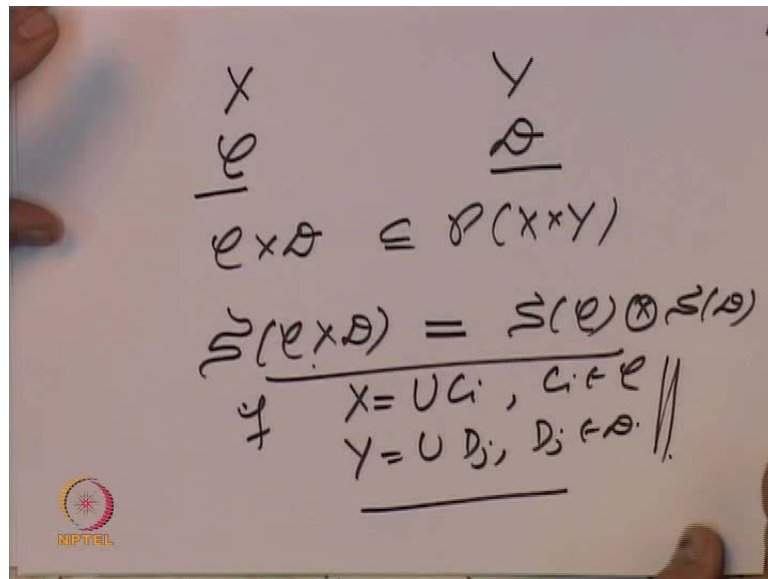 X Y
𝒞 𝒟
𝒞 × 𝒟 ⊆ 𝒫(X×Y)
𝒮(𝒞×𝒟) = 𝒮(𝒞) ⊗ 𝒮(𝒟)
if X = ∪ Ci , Ci ∈ 𝒞
Y = ∪ Dj, Dj ∈ 𝒟.
NPTEL